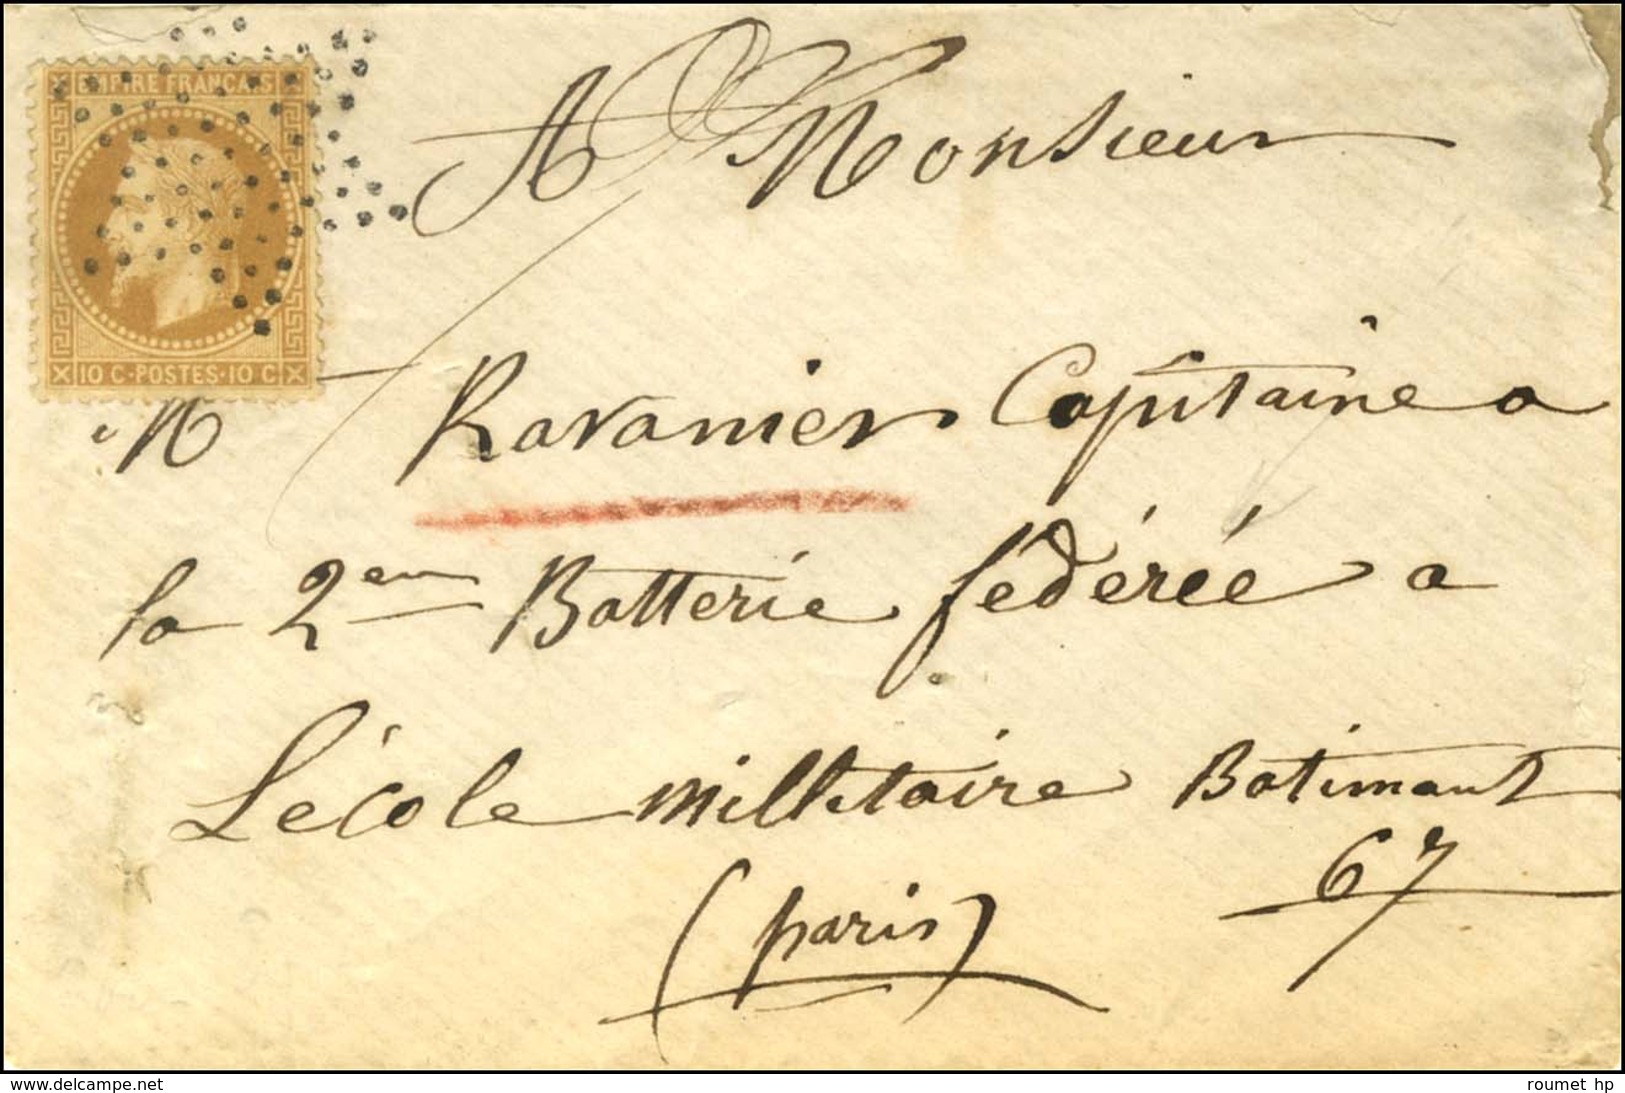 EMPIRE FRANÇAIS
10 C · POSTES · 10 C
A Monsieur
M Ravanier Capitaine a
la 2em Batterie fédérée a
L'école milletaire Batimant
67
(paris)
www.delcampe.net
roumet hp